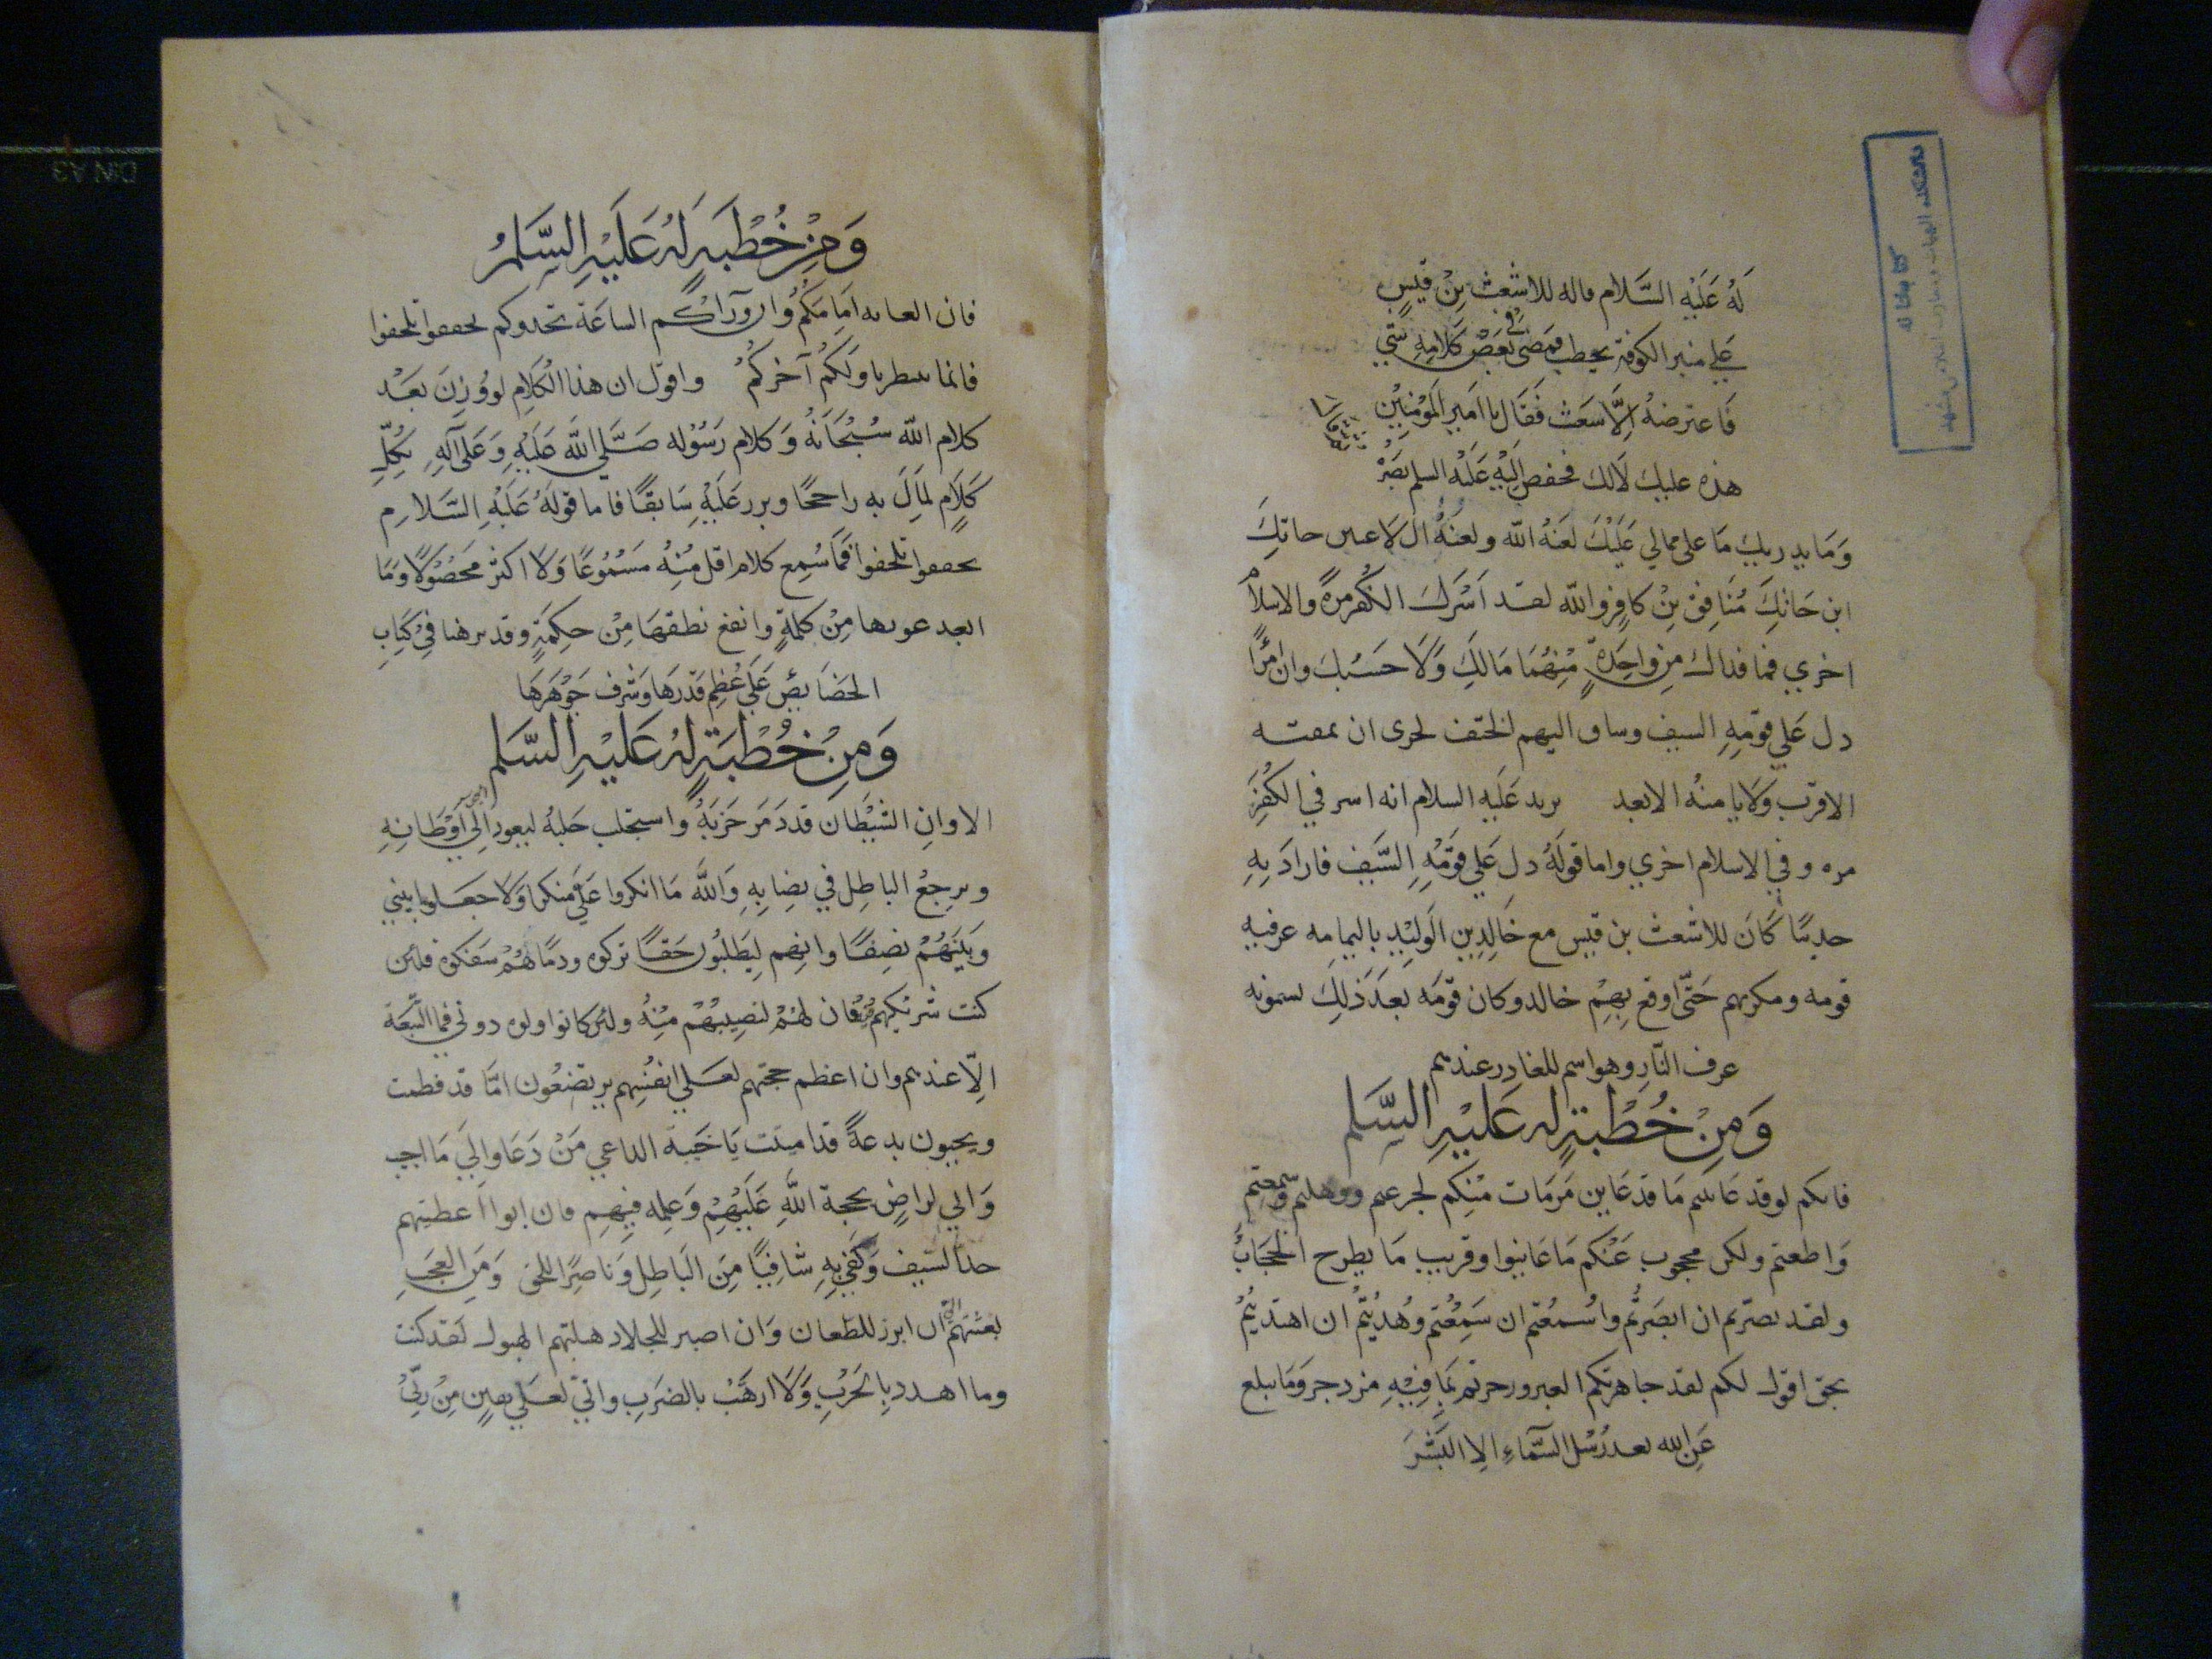 لَهُ عَلَيْهِ السَّلام قاله للاشعث بْنِ قيسٍ
عَلي منبر الكوفة يخطب فمضى في بَعضِ كَلامِهِ شي
فَاعترضهُ الاشعَث فَقَال يا امَير المَؤمِنيْن
هذه عليك لَالك فخفض اليْهِ عَلَيْه السلم بَصَرَهُ
وَمَا يدريك مَا على ممالي عَلَيْكَ لعَنهُ الله ولعنَةُ اللاعنين حائكَ
ابن حَائِكَ مُنَافِق بنْ كافِرٍ والله لقد اَسَركَ الكُفر مرةً والاسلامُ
اخري فما فداك مِن واحِدَةٍ مِنْهُمَا مَالكَ وَلَا حَسَبُك وان امرًا
دل عَلي قومِهِ السيف وساق اليهم الحتف لحرى ان يمقته
الاقرَب وَلا يامنهُ الابعد يريد عَلَيهِ السلام انه اسر في الكُفرِ
مره وفي الاسلام اخري واما قولهُ دل عَلي قومِهِ السَّيف فارادَ بِهِ
حديثا كَان للاشعث بن قيس مع خَالِدِ بن الَوليْدِ باليمامه غر فيه
قومه ومكر بهم حَتّى اوقع بِهِمْ خالد وكان قومَه بعدَ ذلِكَ يسمونه
عرف النّارِ وهو اسم للغادِر عندهم
وَمِنْ خُطْبَةٍ لَهُ عَلَيْهِ السَّلم
فانكم لو قد عَاينتم مَا قد عَاين مَن مَات مِنكِم لجزعتم ووهلتم وسمعتم
وَاطعتم ولكن محجوب عَنكم مَا عَاينوا وقريب مَا يطرح الحجَابُ
ولقد بصّرتم ان ابصَرتُم واُسمعُتم ان سَمِعُتم وَهُديُتم ان اهتديْتُمُ
بحق اقول لكم لقد جاهرتكم العبر وزجرتم بمَا فِيْهِ مزدجر وَمَا يبلغ
عَنِ الله بعد رُسُل السَّمَاءِ الا البَشَرَ
وَمِنْ خُطْبَةٍ لَهُ عَلَيْهِ السَّلمُ
فان الغايه امَامَكُمُ وان ورَآاكُم الساعَة تحدوكم تخففوا تلحقوا
فانما ينتظر باولكُمُ آخركُمُ واقول ان هذا الكَلام لو وُزِنَ بعَدْ
كلام الله سُبْحَانَهُ وَكلام رَسُوْله صَلَّى اللهَ عَلَيْهِ وَعَلى آلهِ بكُلّ
كَلَامٍ لمالَ به راجحًا وبرز عَلَيْهِ سَابقًا فاما قولهُ عَلَيْهِ السَّلامِ
تخففوا تلحقوا فمَا سُمِع كلام اقل مِنْهُ مَسْمُوعًا وَلا اكثر مَحصُوْلًا وَمَا
ابعد غورها مِنْ كلمةٍ وانقع نطقهَا مِنْ حِكمَةٍ وقد نبهنا فيْ كتَابِ
الخصَايصِ عَلَى عُظمِ قَدْرَهَا وَشَرف جَوْهَرهَا
وَمِنْ خُطْبَةٍ لهُ عَلَيْهِ السَّلم
الا وانِ الشيْطَان قد دَمَر حَزبَهُ واستجلب جَلبهُ ليعود الجور الي اَوطَانِهِ
ويرجعُ الباطِل في نصَابِهِ وَاللهُ مَا انكروا عَلَيَّ منكرا وَلا جَعَلوا بيني
وَبَينَهُمْ نصِفًا وانهم ليَطلبُون حَقًّا تركوه ودمًا هُمْ سَفكوه فلئن
كنت شريكهم فيه فان لهُمْ لنصيبهُمْ منهُ ولئن كانوا ولوه دوني فما التّبَعة
الاّ عندهم وان اعظم حجتهم لعَلي انفسِهم يرتضِعُون امّا قد فطمت
ويحيون بدعةً قد اميتت يَا خَيبة الداعي مَنْ دَعَا والي مَا اجيب
وَاني لراضٍ بحجة اللهِ عَلَيْهِمْ وَعِلمِه فيهِم فان ابوا اعطيتهم
حد السيف وَكَفى بِهِ شافيًا مِنَ البَاطِل وَنَاصِرًا للحق وَمَن العَجبِ
بعثتهم الي ان ابرز للطعان وَان اصبر للجلاد هبلتهم الهبول لقد كنت
وما اهدد بِالحَرْبِ وَلا ارهَبُ بالضرَبِ وانيّ لعَلي يقينٍ مِنْ ربّيْ
كتابخانه
دانشكده الهيات ومعارف اسلامى مشهد
DIN A3